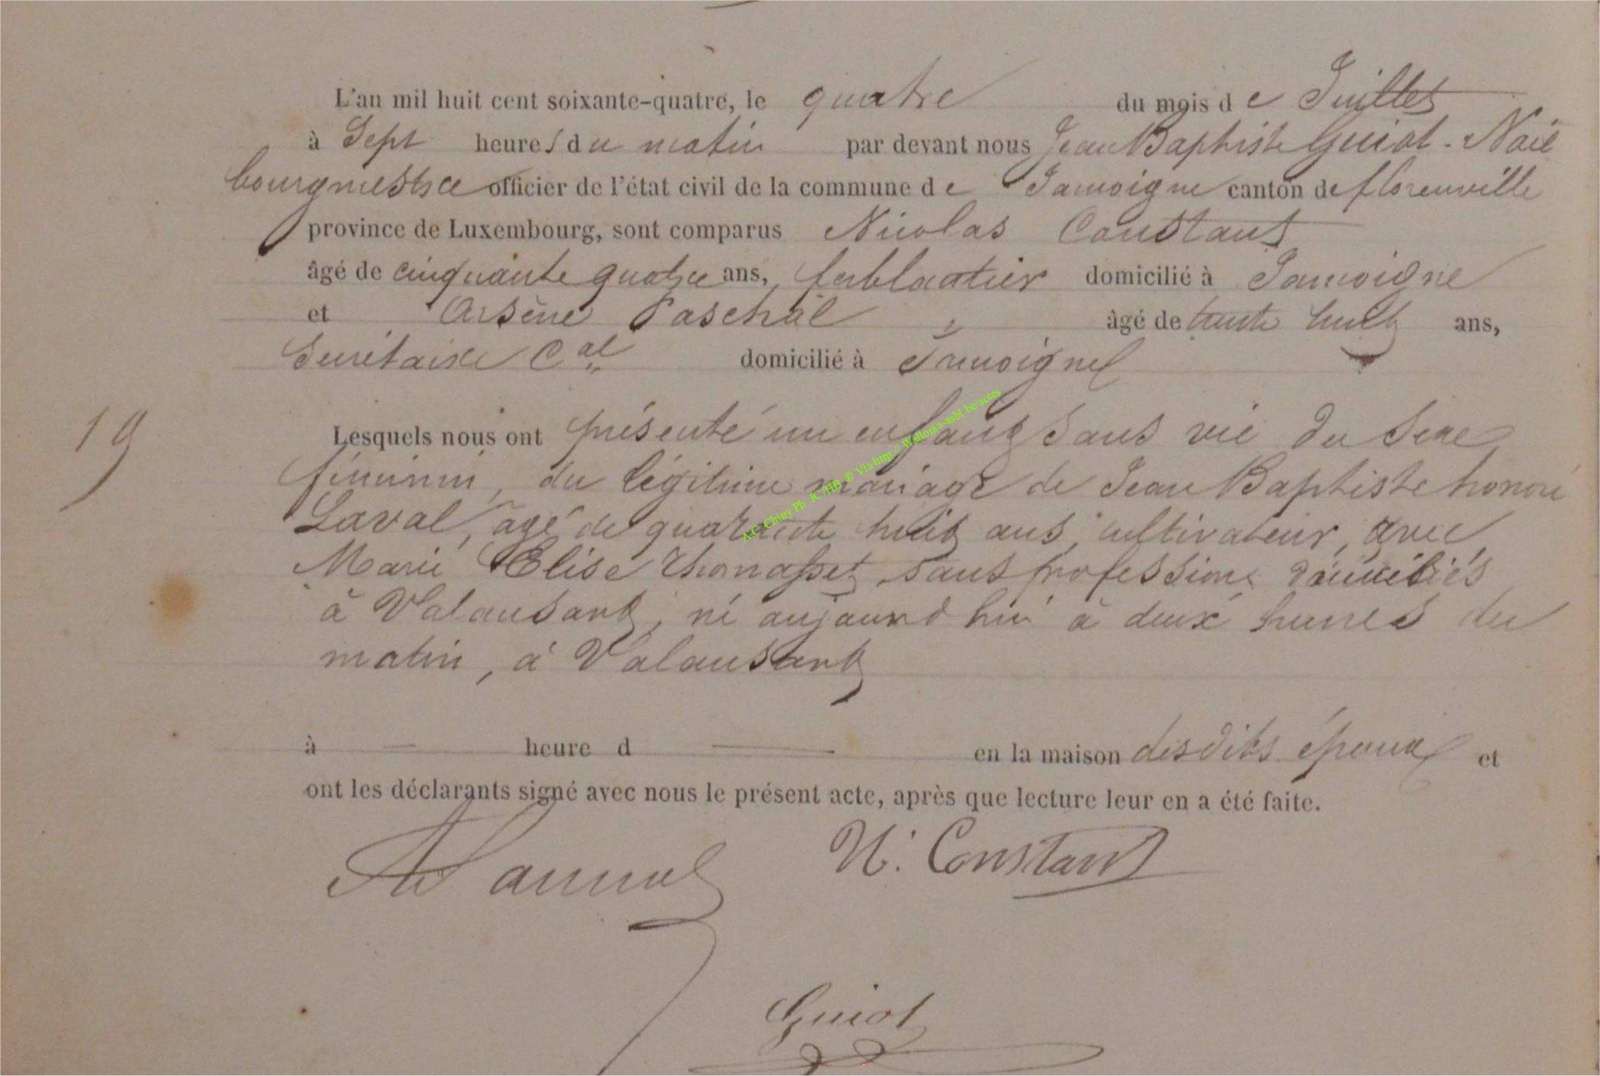 L'an mil huit cent soixante-quatre, le quatre du mois de Juillet
à Sept heures du matin par devant nous Jean Baptiste Guiot-Noië
bourgmestre officier de l'état civil de la commune de Jamoigne canton de florenville
province de Luxembourg, sont comparus Nicolas Constant
âgé de cinquante quatre ans, ferblantier domicilié à Jamoigne
et Arsène Paschal âgé de trente huit ans,
Secrétaire Cal domicilié à Jamoigne
19
Lesquels nous ont présenté un enfant sans vie du sexe
féminin, du légitime mariage de Jean Baptiste honoré
Laval, âgé de quarante huit ans, cultivateur, avec
Marie Elise Thomasset, sans profession, domiciliés
à Valansart, né aujourd'hui à deux heures du
matin, à Valansart
à heure d en la maison desdits époux et
ont les déclarants signé avec nous le présent acte, après que lecture leur en a été faite.
N. Constant
Guiot